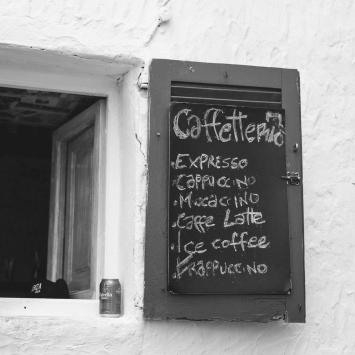 Caffetteria
• Expresso
• Cappuccino
• Mocaccino
• Caffe Latte
• Ice coffee
• Frappuccino